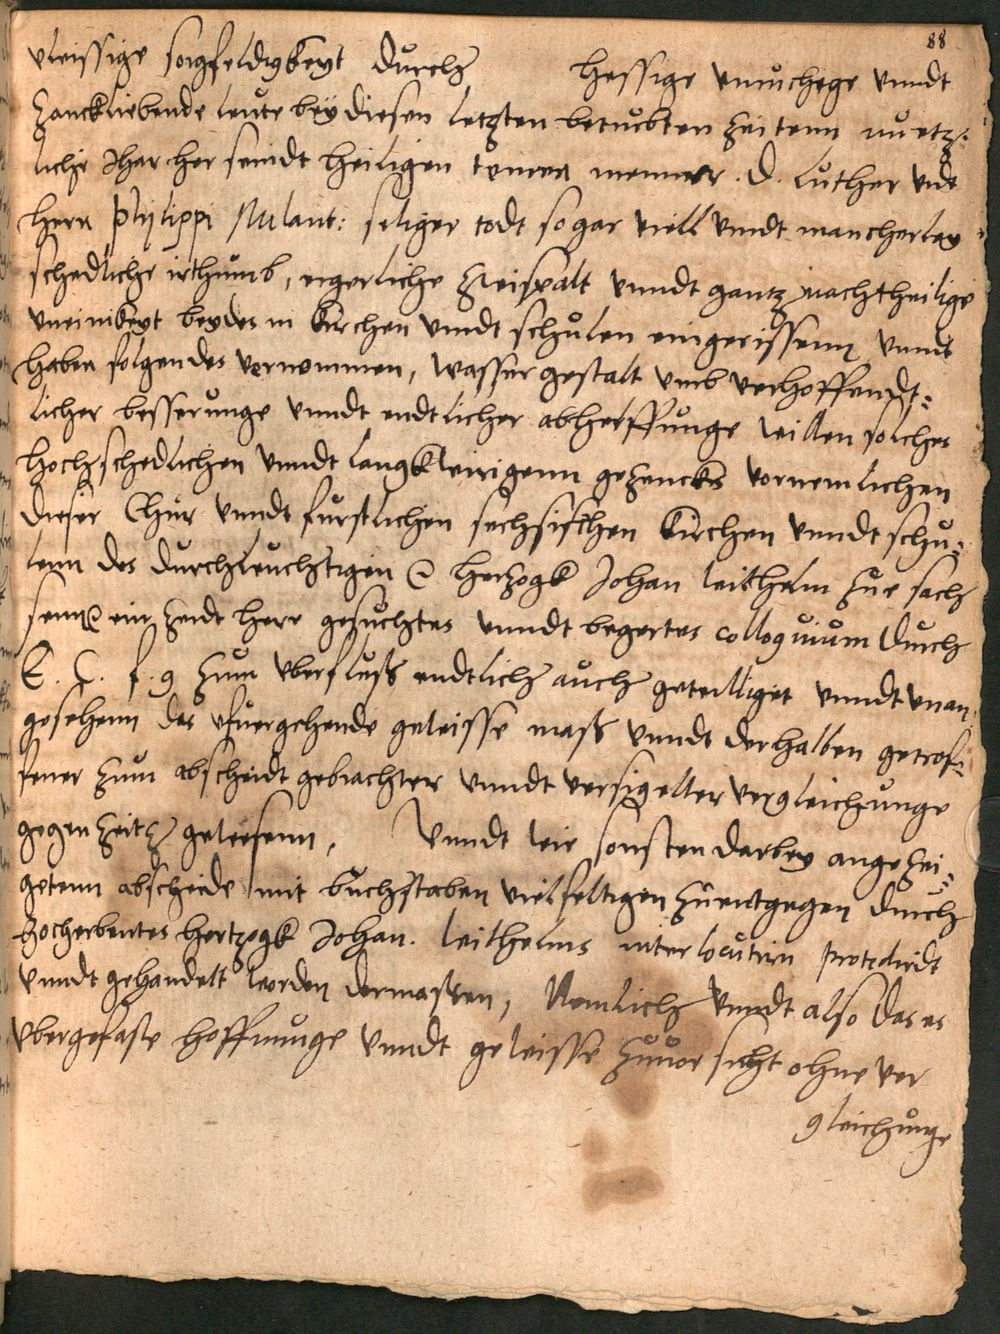 88
vleissige sorgfeldigkeyt durch hessige unruhege unndt
Zanckliebende leute bey diesen letzten betrubten Zeitenn nu etz-
liche Jhar her seindt heiligen menner . D. Luther und
herrn Phylippi Melant: seliger todt so gar viell unndt mancherley
schedliche irthumb, ergerliche Zweispalt unndt gantz nachtheilige
uneinikeyt beydes in Kirchen unndt schulen eingerissenn unnd
haben folgendes vernommen, wasser gestalt umb verhoffendt-
licher besserunge unndt endtlicher abhelffunge willen solches
hochschedlichen unndt langkwirigenn gezencks vornemlichen
dieser Chur unndt furstlichen sechsischen Kirchen unndt schu-
lenn des Durchleuchtigen Herzogk Johan Wilhelm Zue Sach
senn ein Zeidt hero gesuchtes unndt begertes colloquium durch
E. C. f. g Zum uberfluss endtlich auch gewilliget unndt unan-
gesehenn des gewisse mass unndt derhalben getrof-
fener Zum abscheidt gebrachter unndt versigelter vergleichunge
gegen Zeitz gewesenn, Unndt wie sonsten darbey angezei-
getenn abscheide mit buchstaben vielfeltigen Zuentgegen durch
hocherbentes Hertzogk Johan. Wilhelms interlocutirn procedirdt
unndt gehandelt worden dermassen, Nemlich unndt also das es
ubergefaste hoffnunge unndt gewisse Zuvorsicht ohne ver
gleichunge